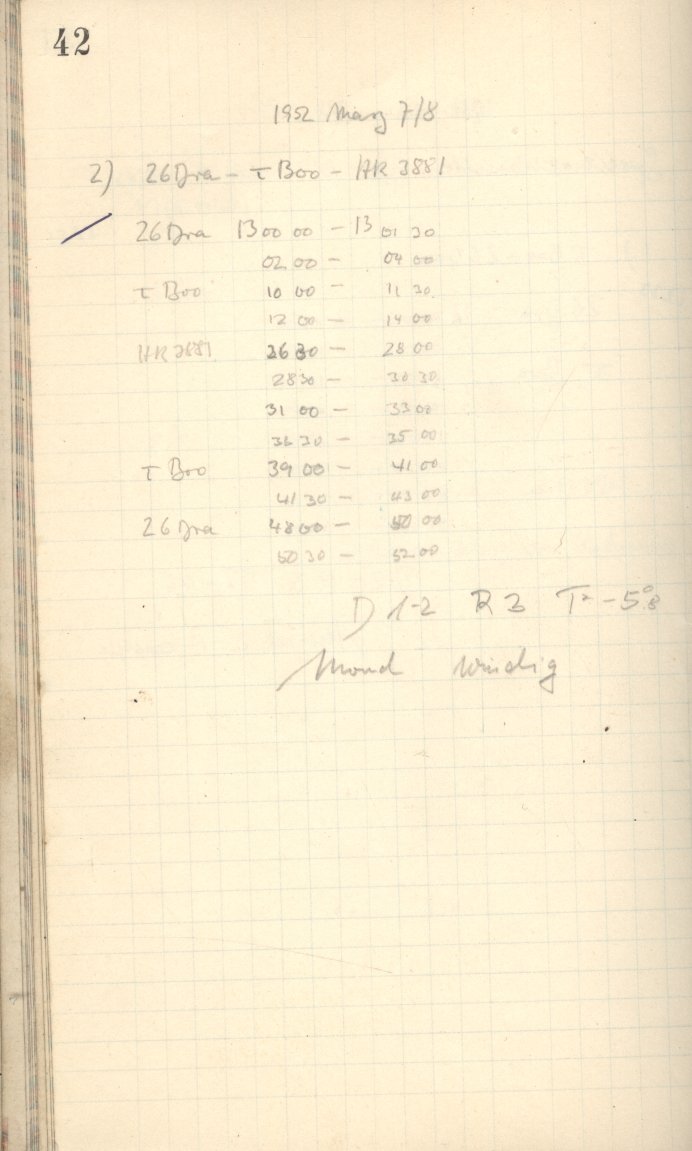 42
1952 März 7/8
2) 26 Dra – τ Boo – HR 3881
26 Dra 13 00 00 – 13 01 30
02 00 – 04 00
τ Boo 10 00 – 11 30
12 00 – 14 00
HR 3881 26 30 – 28 00
28 30 – 30 30
31 00 – 33 00
33 30 – 35 00
τ Boo 39 00 – 41 00
41 30 – 43 00
26 Dra 48 00 – 50 00
50 30 – 52 00
D 1-2 R 3 T = -5°.8
Mond windig